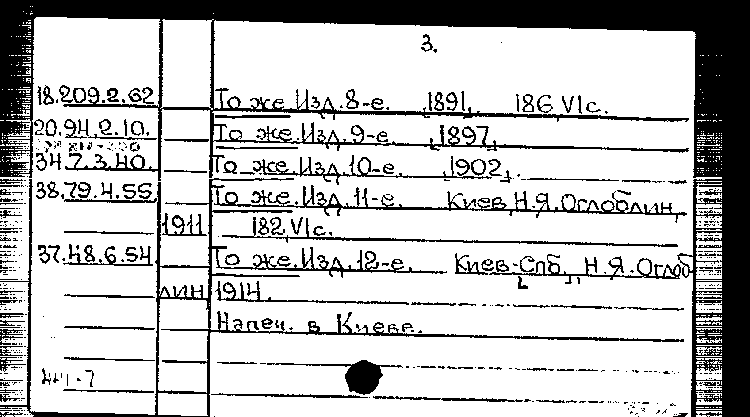 3.
18.209.2.62 То же. Изд. 8-е. 1891. 186, VI с.
20.94.2.10. То же. Изд. 9-е. 1897.
34.7.3.40. То же. Изд. 10-е. 1902.
38.79.4.55 То же. Изд. 11-е. Киев, Н.Я. Оглоблин,
1911 182, VI с.
37.48.6.54 То же. Изд. 12-е. Киев-Спб., Н.Я. Оглоб
лин 1914.
Напеч. в Киеве.